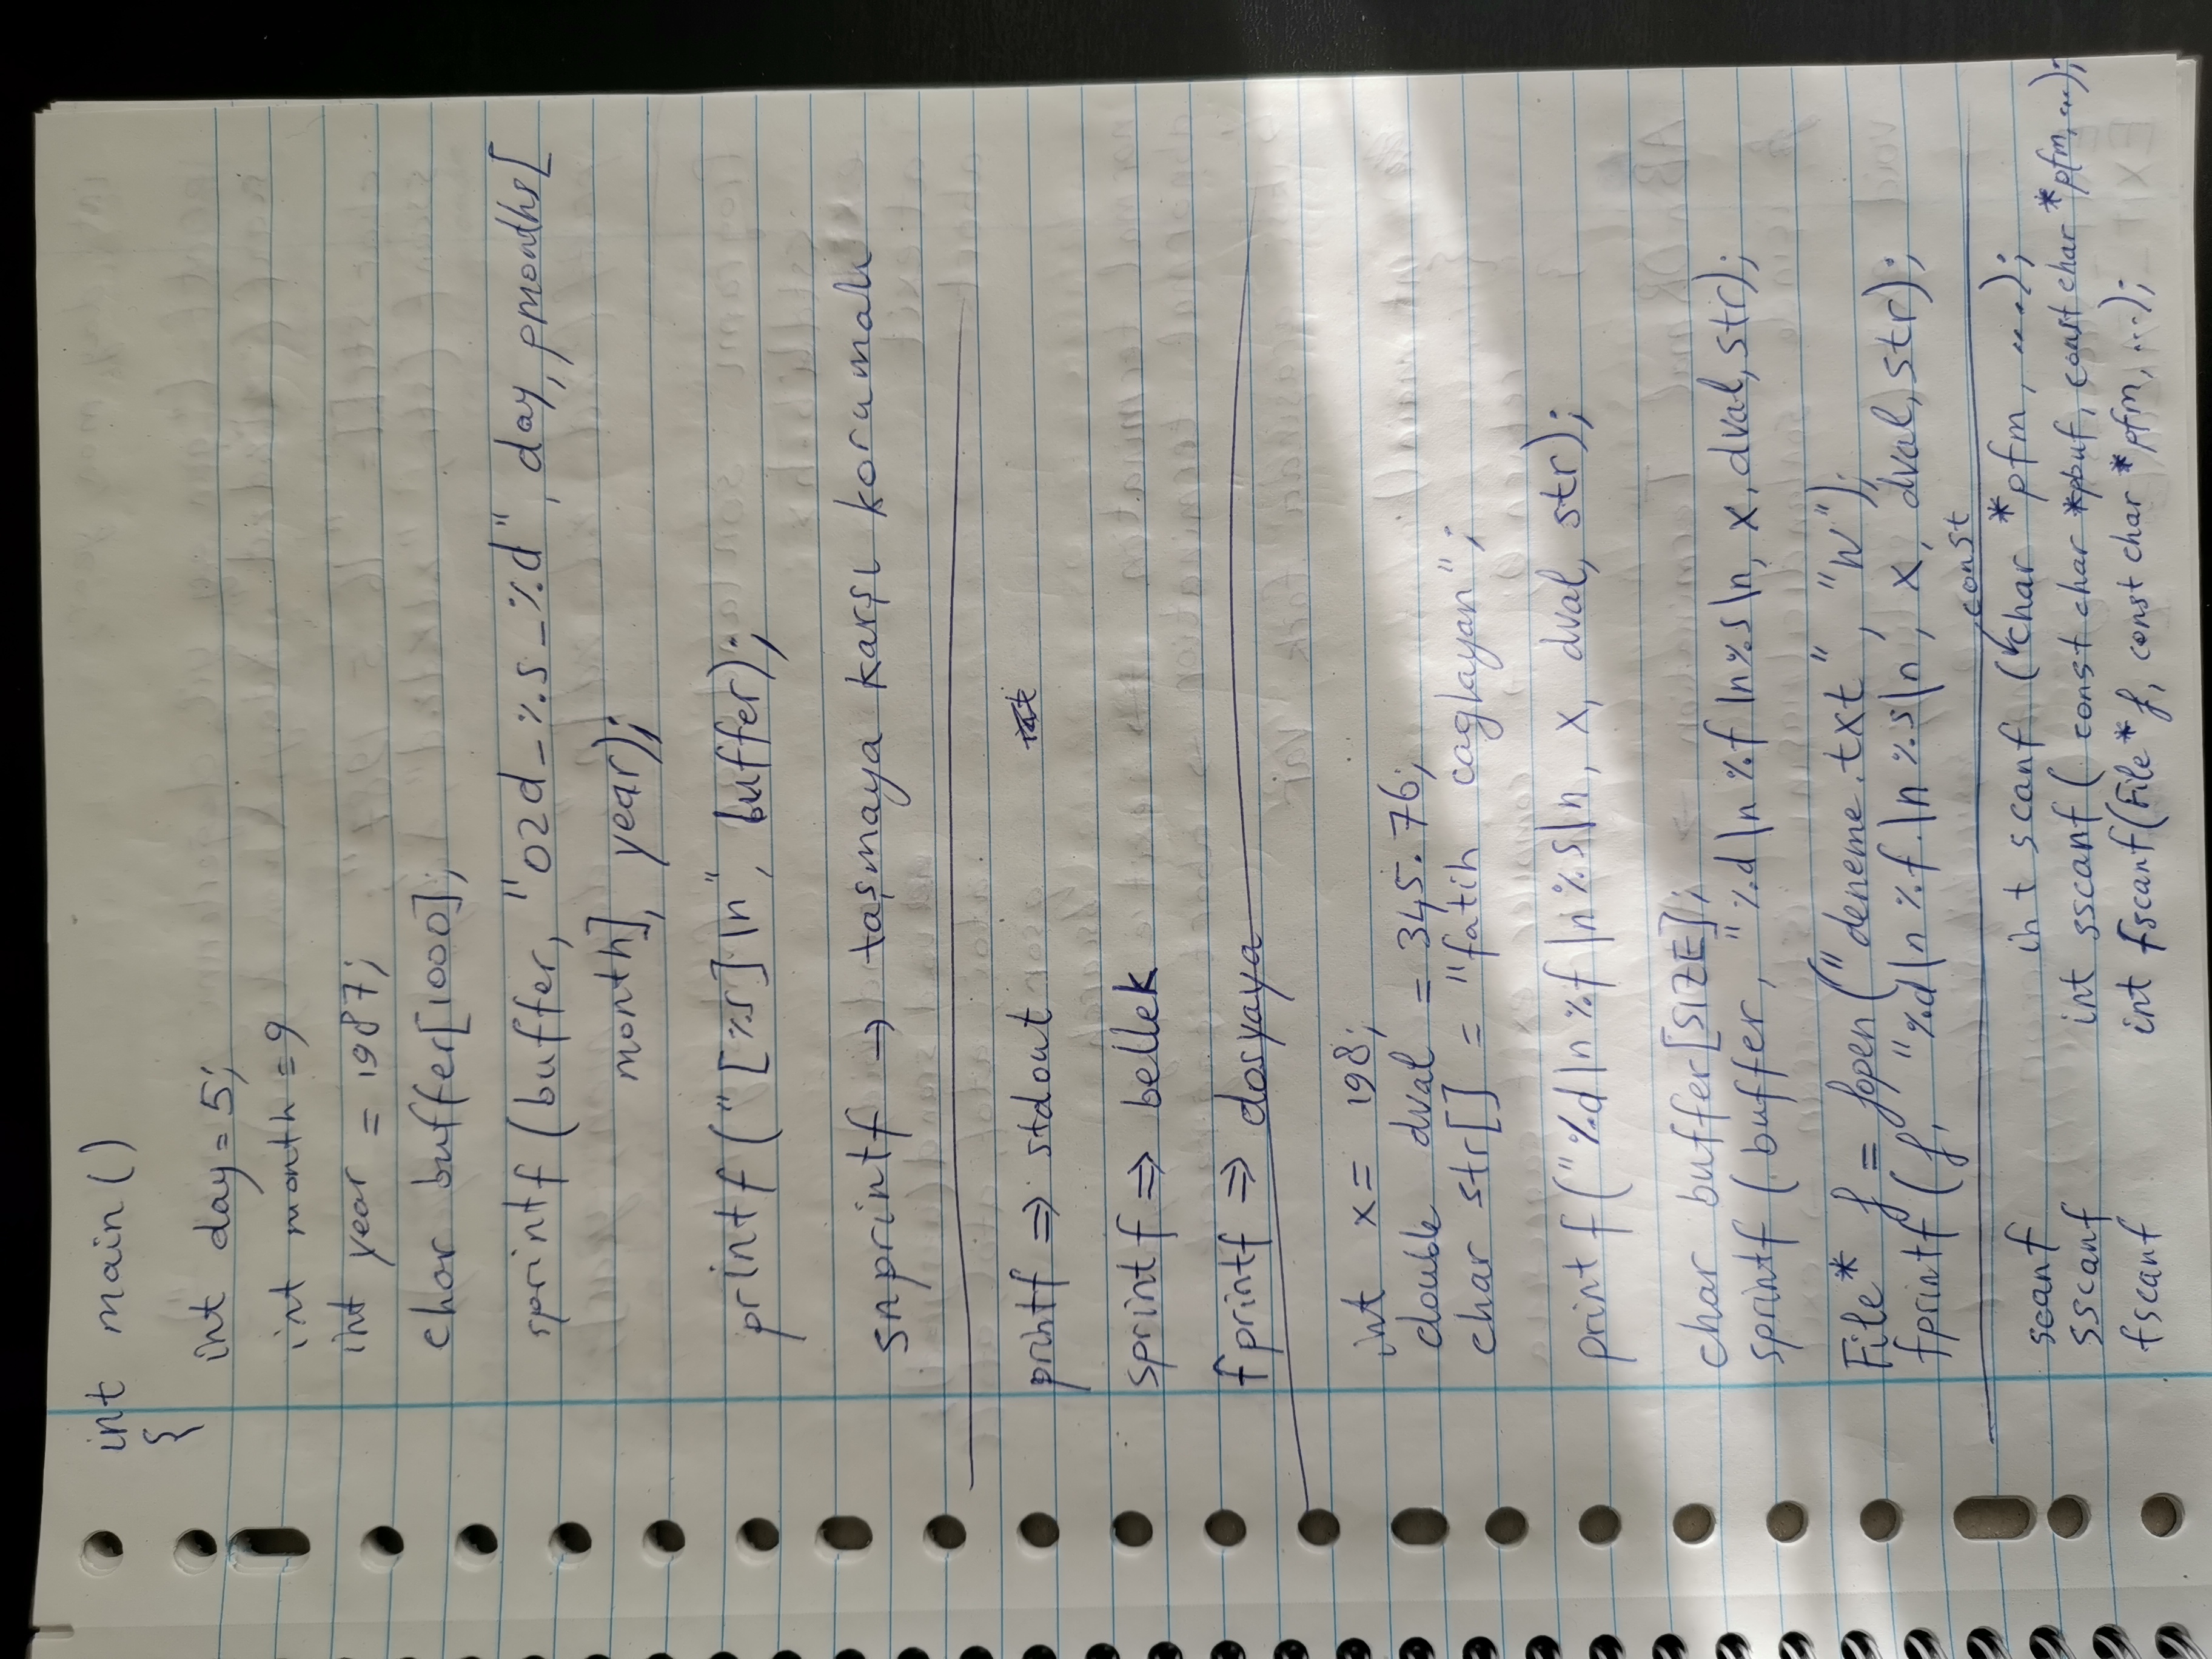 int main()
{
int day = 5;
int month = 9
int year = 1987;
char buffer[1000];
sprintf (buffer, "02d_%s_%d", day, pmonths[
month], year);
printf ("[%s]\n", buffer);
snprintf → taşmaya karşı korumalı
printf ⇒ stdout
sprintf ⇒ bellek
fprintf ⇒ dosyaya
int x = 198;
double dval = 345.76;
char str[] = "fatih caglayan";
printf ("%d\n%f\n%s\n, x, dval, str);
char buffer[SIZE];
sprintf ( buffer, "%d\n%f\n%s\n, x, dval, str);
File* f = fopen ("deneme.txt", "w");
fprintf (f, "%d\n%f.\n%s\n, x, dval, str);
scanf int scanf (const char *pfm, ...);
sscanf int sscanf ( const char *pbuf, const char *pfm, ...);
fscanf int fscanf(File* f, const char *pfm, ...);